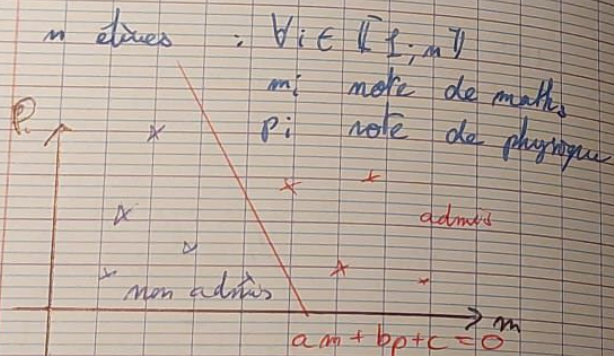 n élèves : ∀i ∈ ⟦1; n⟧
mi note de maths
pi note de physique
P
admis
non admis
m
am + bp + c = 0